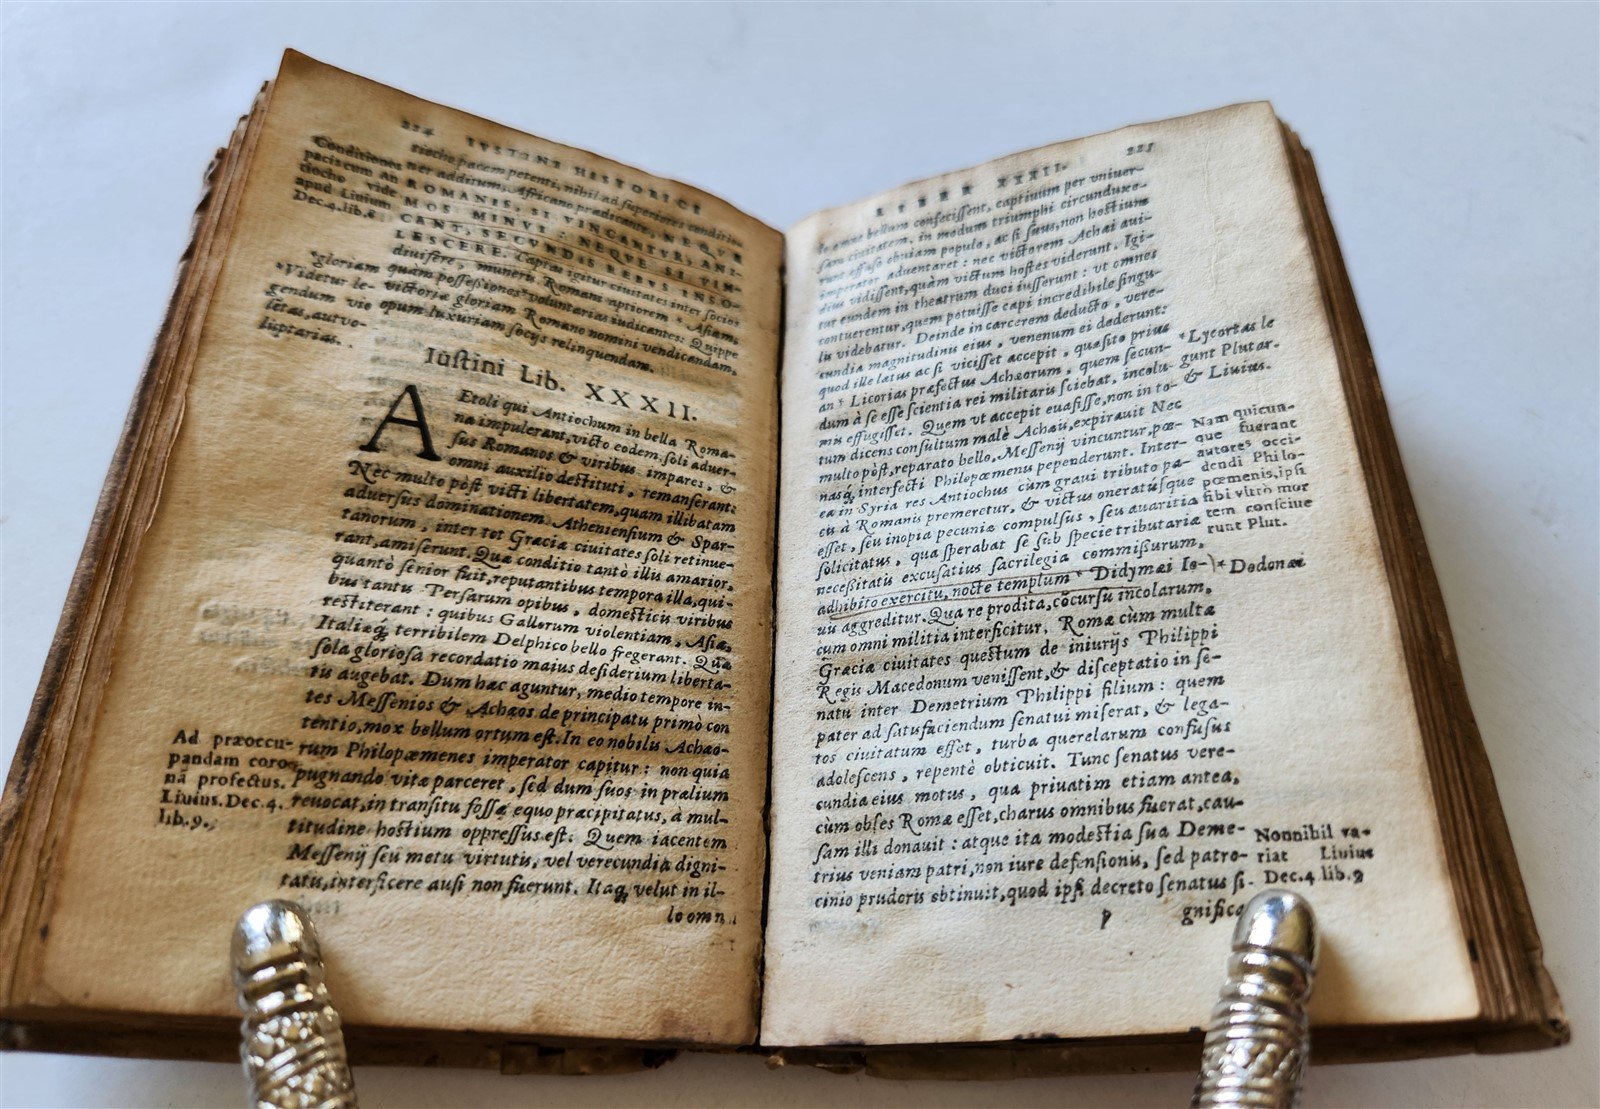 224 IVSTINI HISTORICI
tiocho pacem petenti, nihil ad superiores conditio
nes additum, Africano prædicante, NEQVE
ROMANIS, SI VINCANTVR, ANI-
MOS MINVI: NEQVE SI VIN-
CANT, SECVNDIS REBVS INSO-
LESCERE. Captas igitur ciuitates inter socios
diuisere, muneri Romani aptiorem * Asiam,
quàm possessiones voluntarias iudicantes: Quippe
victoriæ gloriam Romano nomini vendicandam,
opum luxuriam socijs relinquendam.
Conditiones
pacis cum An
tiocho vide
apud Liuium
Dec. 4. lib. 8
*gloriam
*Videtur le-
gendum vie
letas, aut vo-
luptarias.
Iustini Lib. XXXII.
AEtoli qui Antiochum in bella Roma-
na impulerant, victo eodem, soli aduer-
sus Romanos & viribus impares, &
omni auxilio destituti, remanserant:
Nec multo pòst victi libertatem, quam illibatam
aduersus dominationem Atheniensium & Spar-
tanorum, inter tot Græciæ ciuitates soli retinue-
rant, amiserunt. Quæ conditio tantò illis amarior,
quantò senior fuit, reputantibus tempora illa, qui-
bus tantis Persarum opibus, domesticis viribus
restiterant: quibus Gallorum violentiam, Asiæ,
Italiæq́; terribilem Delphico bello fregerant. Quæ
sola gloriosa recordatio maius desiderium liberta-
tis augebat. Dum hæc aguntur, medio tempore in-
tes Messenios & Achæos de principatu primò con
tentio, mox bellum ortum est. In eo nobilis Achæo-
rum Philopæmenes imperator capitur: non quia
pugnando vitæ parceret, sed dum suos in prælium
reuocat, in transitu fossæ equo præcipitatus, à mul-
titudine hostium oppressus est: Quem iacentem
Messenij seu metu virtutis, vel verecundia digni-
tatis, interficere ausi non fuerunt. Itaq; velut in il-
lo omn
Ad præoccu-
pandam coro
nā profectus.
Liuius. Dec. 4.
lib. 9.
LIBER XXXII. 225
lo omne bellum confecissent, captiuum per vniuer-
sam ciuitatem, in modum triumphi circunduxe-
runt effuso obuiam populo, ac si suus, non hostium
imperator aduentaret: nec victorem Achæi aui-
dius vidissent, quàm victum hostes viderunt. Igi-
tur eundem in theatrum duci iusserunt: vt omnes
contuerentur, quem potuisse capi incredibile singu-
lis videbatur. Deinde in carcerem deducto, vere-
cundia magnitudinis eius, venenum ei dederunt:
quod ille lætus ac si vicisset accepit, quæsito prius
an * Licorias præfectus Achæorum, quem secun-
dum à se esse scientia rei militaris sciebat, incolu
mis effugisset. Quem vt accepit euasisse, non in to-
tum dicens consultum malè Achæis, expirauit Nec
multo pòst, reparato bello, Messenij vincuntur, pœ-
nasq́; interfecti Philopœmenis pependerunt. Inter-
ea in Syria rex Antiochus cùm graui tributo pa-
cis à Romanis premeretur, & victus oneratúsque
esset, seu inopia pecuniæ compulsus, seu auaritia
solicitatus, qua sperabat se sub specie tributariæ
necessitatis excusatius sacrilegia commissurum,
adhibito exercitu, nocte templum * Didymæi Io-
uis aggreditur. Qua re prodita, cōcursu incolarum,
cum omni militia interficitur. Romæ cùm multæ
Græciæ ciuitates questum de iniurijs Philippi
Regis Macedonum venissent, & disceptatio in se-
natu inter Demetrium Philippi filium: quem
pater ad satisfaciendum senatui miserat, & lega-
tos ciuitatum esset, turba querelarum confusus
adolescens, repentè obticuit. Tunc senatus vere-
cundia eius motus, qua priuatim etiam antea,
cùm obses Romæ esset, charus omnibus fuerat, cau-
sam illi donauit: atque ita modestia sua Deme-
trius veniam patri, non iure defensionis, sed patro-
cinio prudoris obtinuit, quod ipsi decreto senatus si-
p gnifica
*Lycortas le
gunt Plutar.
& Liuius.
Nam quicun-
que fuerant
autores occi-
dendi Philo-
pœmenis, ipsi
sibi vltrò mor
tem consciue
runt Plut.
*Dodonæi
Nonnihil va-
riat Liuius
Dec. 4 lib. 9